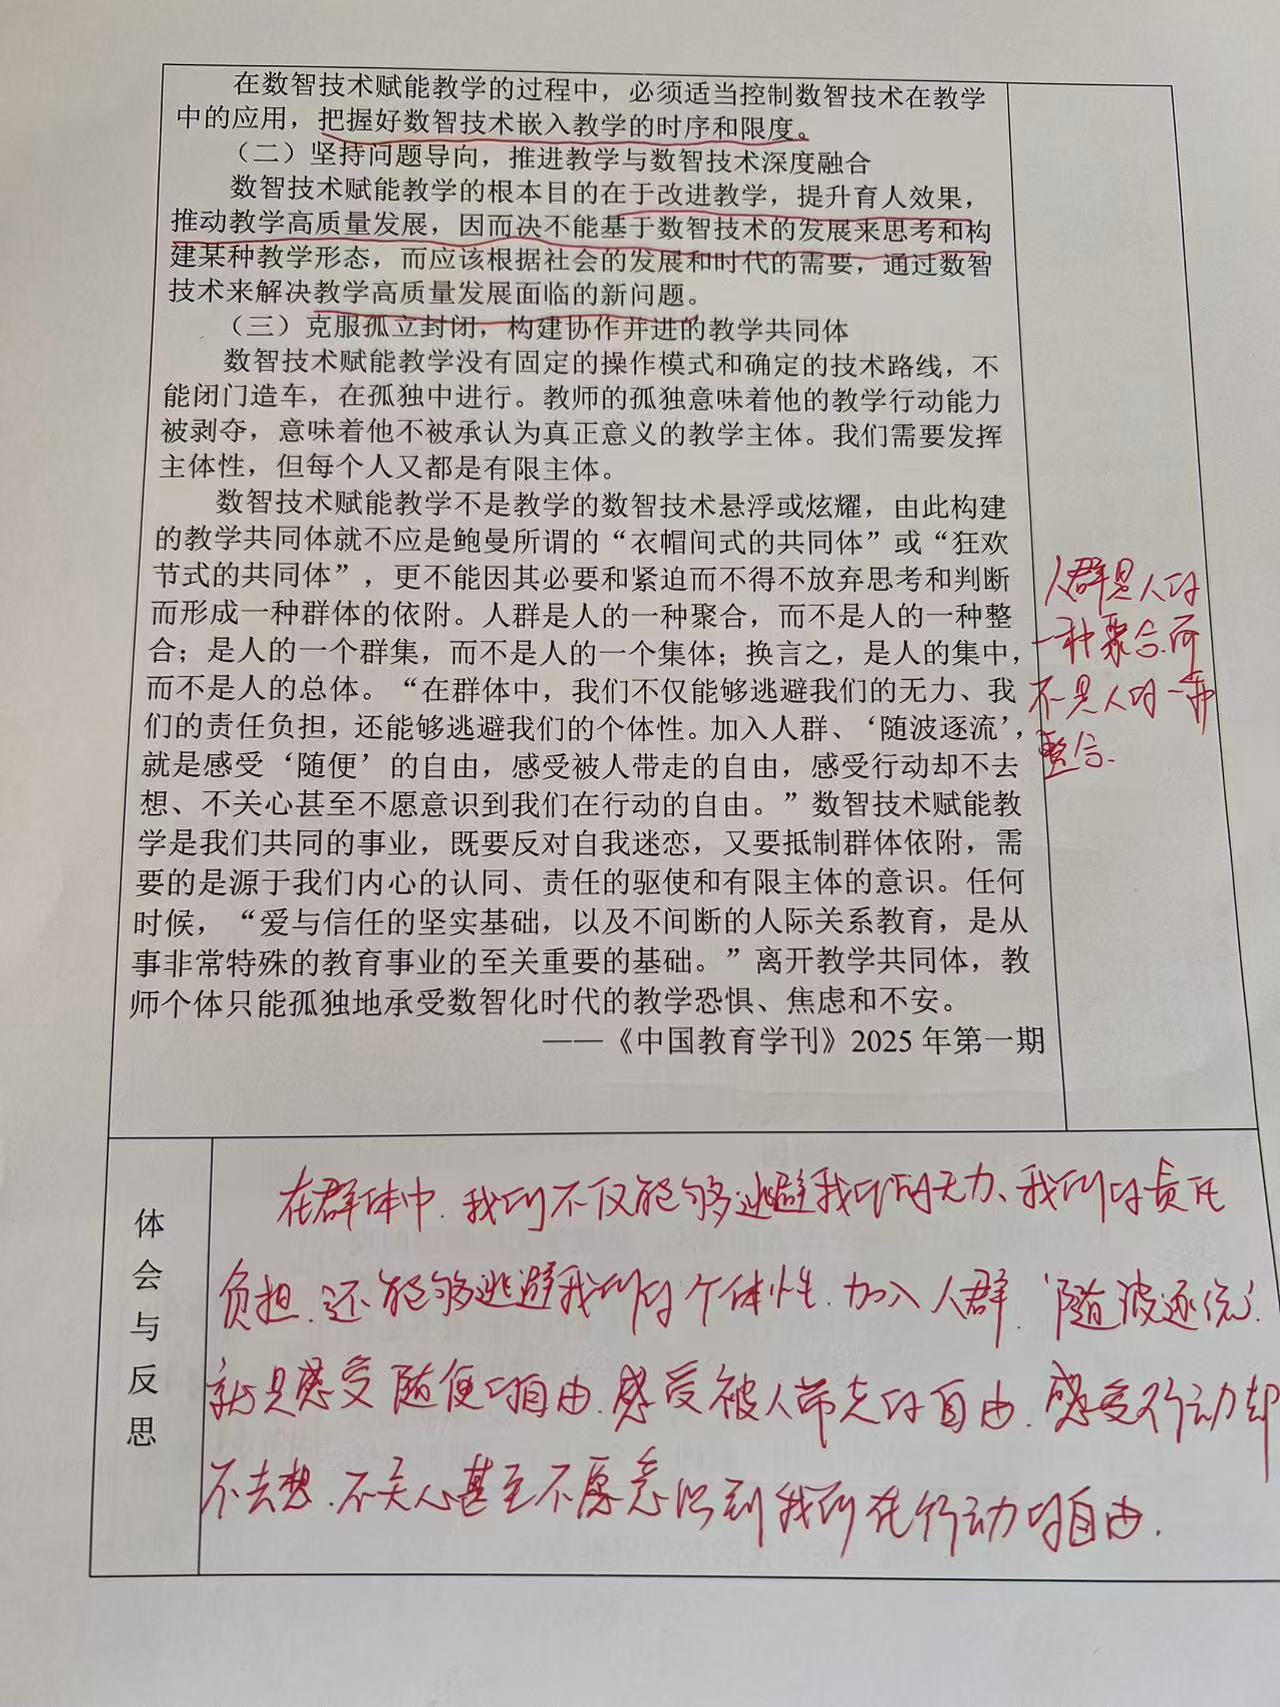 在数智技术赋能教学的过程中，必须适当控制数智技术在教学
中的应用，把握好数智技术嵌入教学的时序和限度。
（二）坚持问题导向，推进教学与数智技术深度融合
数智技术赋能教学的根本目的在于改进教学，提升育人效果，
推动教学高质量发展，因而决不能基于数智技术的发展来思考和构
建某种教学形态，而应该根据社会的发展和时代的需要，通过数智
技术来解决教学高质量发展面临的新问题。
（三）克服孤立封闭，构建协作并进的教学共同体
数智技术赋能教学没有固定的操作模式和确定的技术路线，不
能闭门造车，在孤独中进行。教师的孤独意味着他的教学行动能力
被剥夺，意味着他不被承认为真正意义的教学主体。我们需要发挥
主体性，但每个人又都是有限主体。
数智技术赋能教学不是教学的数智技术悬浮或炫耀，由此构建
的教学共同体就不应是鲍曼所谓的“衣帽间式的共同体”或“狂欢
节式的共同体”，更不能因其必要和紧迫而不得不放弃思考和判断
而形成一种群体的依附。人群是人的一种聚合，而不是人的一种整
合；是人的一个群集，而不是人的一个集体；换言之，是人的集中，
而不是人的总体。“在群体中，我们不仅能够逃避我们的无力、我
们的责任负担，还能够逃避我们的个体性。加入人群、‘随波逐流’，
就是感受‘随便’的自由，感受被人带走的自由，感受行动却不去
想、不关心甚至不愿意识到我们在行动的自由。”数智技术赋能教
学是我们共同的事业，既要反对自我迷恋，又要抵制群体依附，需
要的是源于我们内心的认同、责任的驱使和有限主体的意识。任何
时候，“爱与信任的坚实基础，以及不间断的人际关系教育，是从
事非常特殊的教育事业的至关重要的基础。”离开教学共同体，教
师个体只能孤独地承受数智化时代的教学恐惧、焦虑和不安。
——《中国教育学刊》2025 年第一期
人群是人的
一种聚合，而
不是人的一种
整合.
体会与反思
在群体中，我们不仅能够逃避我们的无力、我们的责任
负担，还能够逃避我们的个体性.加入人群.‘随波逐流’.
就是感受随便的自由.感受被人带走的自由.感受行动却
不去想.不关心甚至不愿意识到我们在行动的自由.